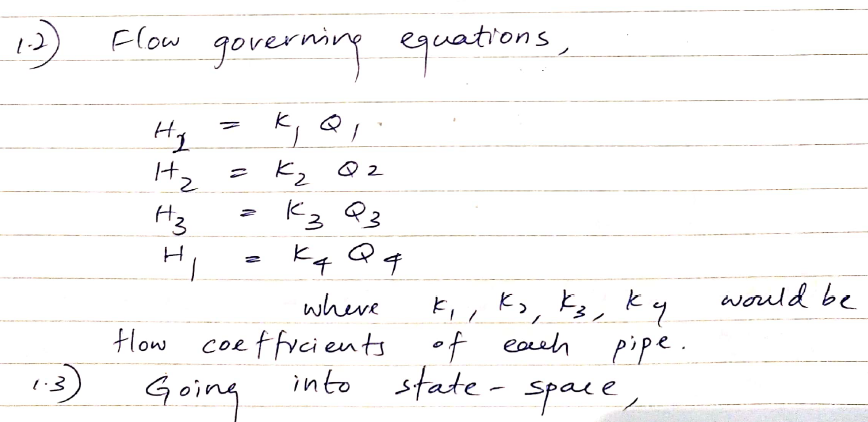 1.2) Flow governing equations,
H1 = K1 Q1
H2 = K2 Q2
H3 = K3 Q3
H1 = K4 Q4
where K1, K2, K3, K4 would be
flow coefficients of each pipe.
1.3) Going into state-space,